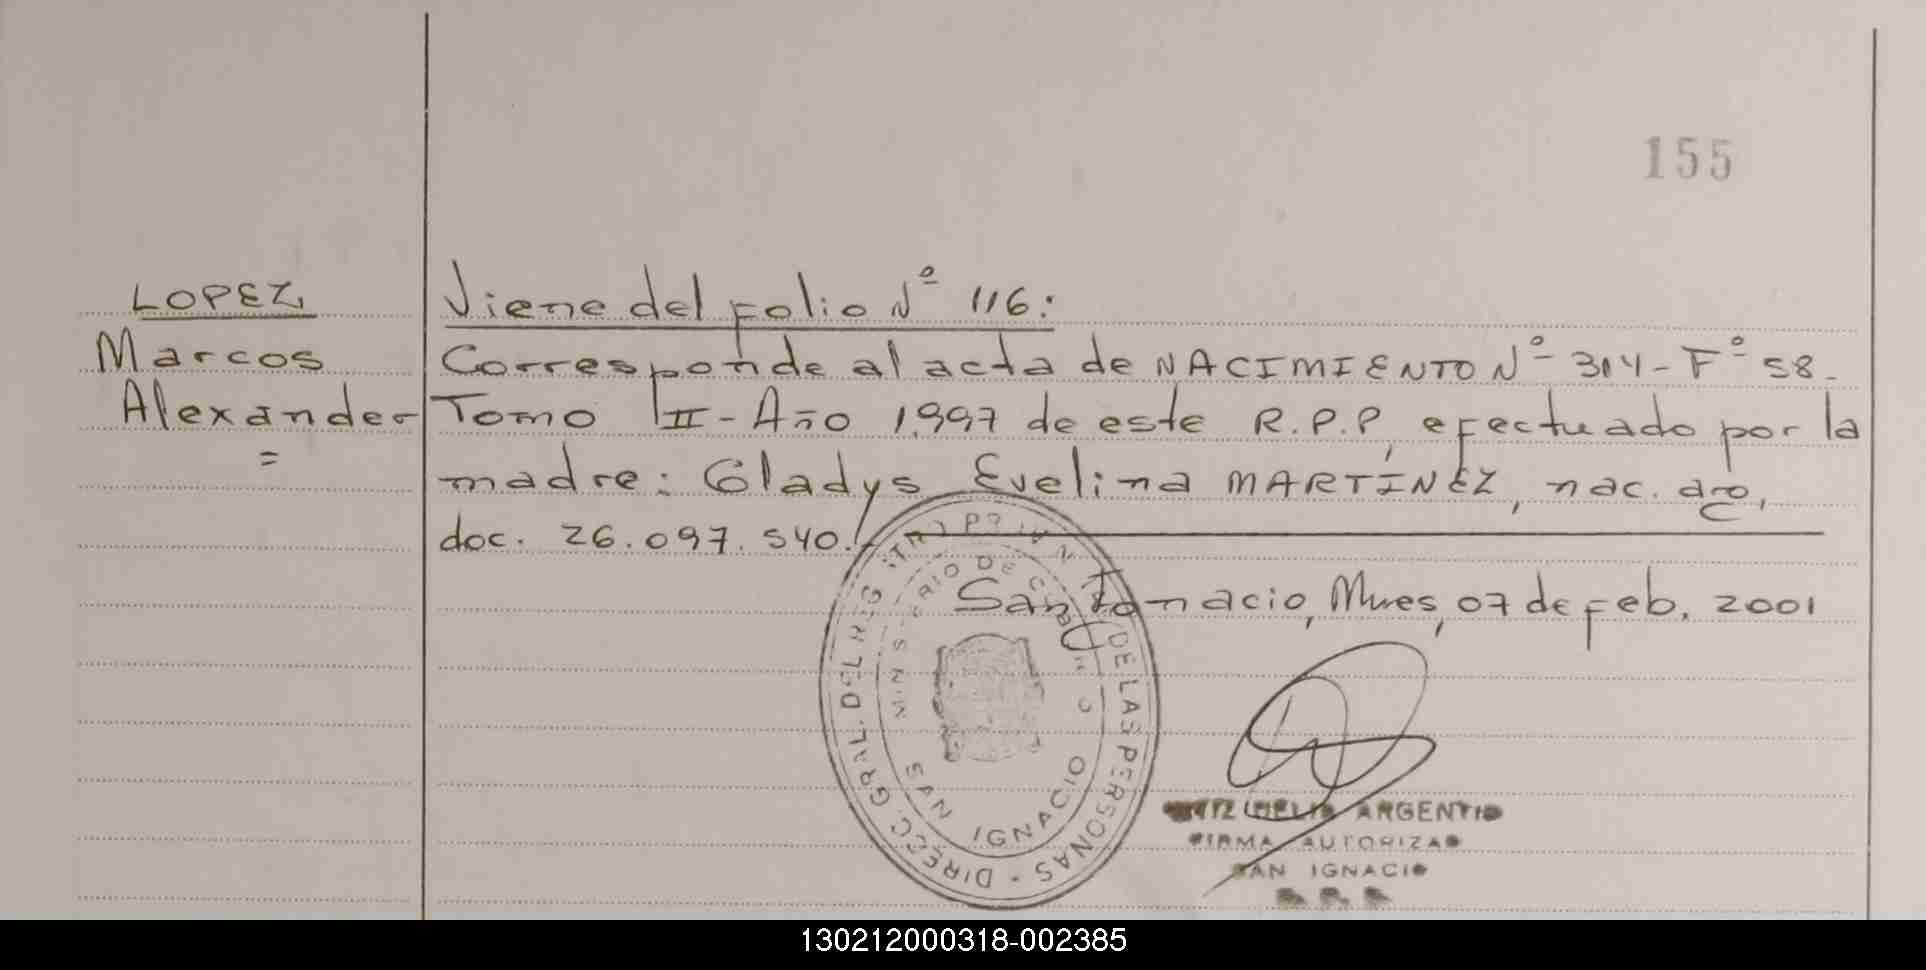 155
LOPEZ,
Marcos
Alexander
=
Viene del Folio Nº 116:
Corresponde al acta de NACIMIENTO Nº 314 - Fº 58 -
Tomo III - Año 1.997 de este R.P.P, efectuado por la
madre: Gladys Evelina MARTÍNEZ, nac. arg,
doc. 26.097.540./
San Ignacio, Mnes, 07 de Feb. 2001
DIRECC GRAL. DEL REG DE LAS PERSONAS
SAN IGNACIO
ARGENTI
FIRMA AUTORIZAD
SAN IGNACIO
130212000318-002385